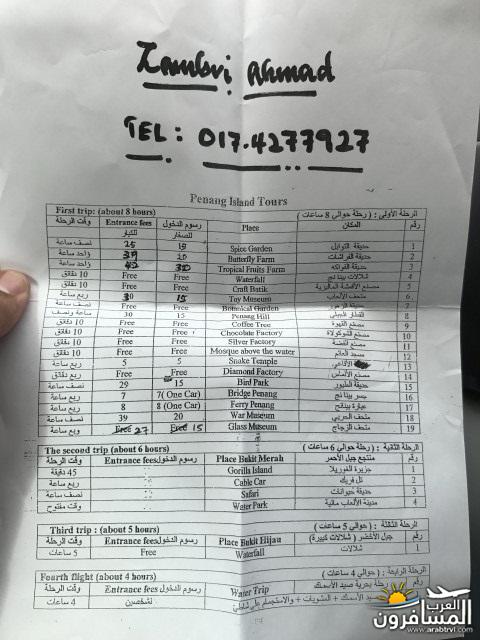 Zambri Ahmad
TEL : 017.4277927
Penang Island Tours
First trip: (about 8 hours) الرحلة الأولى : ( رحلة حوالي 8 ساعات )
وقت الرحلة Entrance fees رسوم الدخول Place المكان رقم
للكبار للصغار
نصف ساعة 25 15 Spice Garden حديقة التوابل 1
واحد ساعة 20 Butterfly Farm حديقة الفراشات 2
واحد ساعة Tropical Fruits Farm حديقة الفواكه 3
10 دقائق Free Free Waterfall 4
10 دقائق Free Free Craft Batik 5
ربع ساعة 30 15 Toy Museum متحف الألعاب 6
Free Free Botanical Garden 7
30 15 Penang Hill 8
10 دقائق Free Free Coffee Tree مصنع القهوة 9
10 دقائق Free Free Chocolate Factory 10
10 دقائق Free Free Silver Factory مصنع الفضة 11
10 دقائق Free Free Mosque above the water 12
ربع ساعة 5 5 Snake Temple الأفاعي 13
Free Free Diamond Factory مصنع الألماس 14
نصف ساعة 29 15 Bird Park حديقة الطيور 15
ربع ساعة 7 7( One Car) Bridge Penang 16
ربع ساعة 8 8 (One Car) Ferry Penang 17
نصف ساعة 39 20 War Museum متحف الحرب 18
Free 27 Free 15 Glass Museum متحف الزجاج 19
The second trip (about 6 hours) الرحلة الثانية : ( رحلة حوالي 6 ساعات )
وقت الرحلة Entrance fees رسوم الدخول Place Bukit Merah منتجع جبل الأحمر رقم
45 دقيقة Gorilla Island جزيرة الغوريلا 1
ربع ساعة Cable Car تل فريك 2
نصف ساعة Safari حديقة حيوانات 3
وقت مفتوح Water Park مدينة الألعاب مائية 4
Third trip : (about 5 hours) الرحلة الثالثة : ( حوالي 5 ساعات )
وقت الرحلة Entrance fees رسوم الدخول Place Bukit Hijau جبل الأخضر ( شلالات كبيرة ) رقم
5 ساعات Free Waterfall شلالات 1
Fourth flight (about 4 hours) الرحلة الرابعة : ( حوالي 4 ساعات )
وقت الرحلة Entrance fees رسوم الدخول Water Trip رحلة بحرية صيد الأسماك رقم
4 ساعات لشخصين صيد الأسماك + المشويات +
العرب المسافرون
www.arabtrvl.com